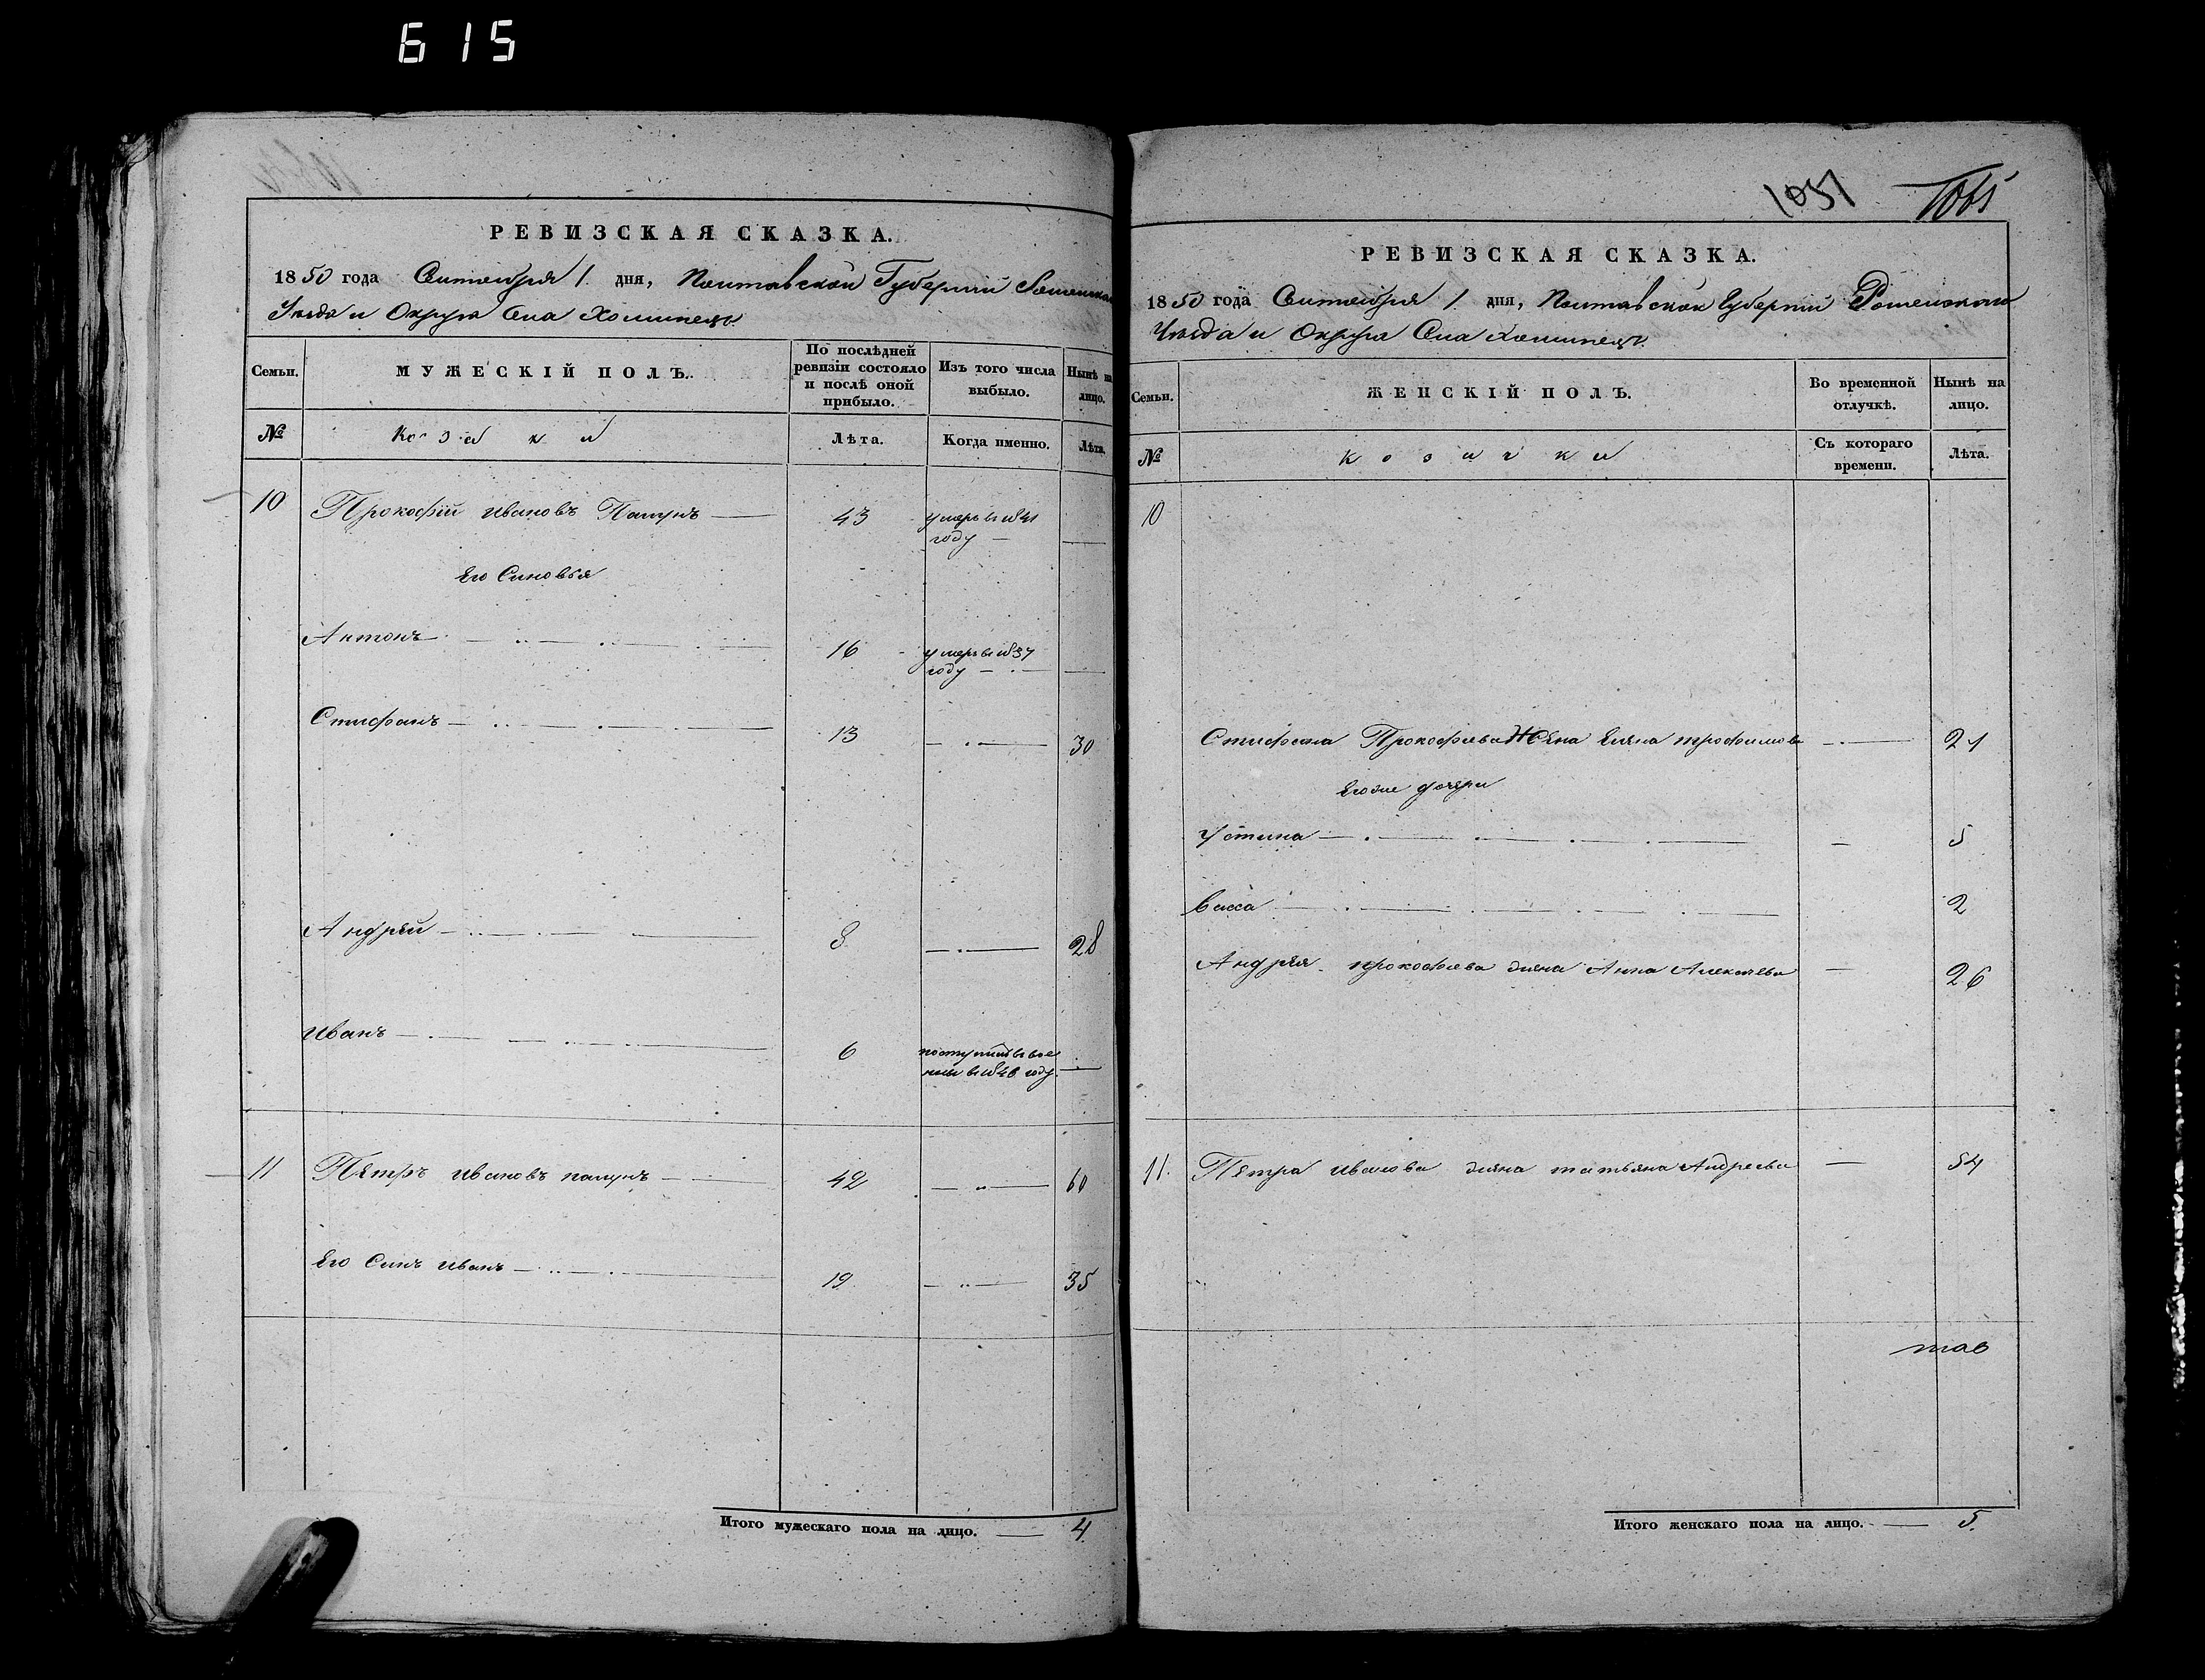 615
РЕВИЗСКАЯ СКАЗКА.
1850 года Сентября 1 дня, Полтавской Губернии Роменскаго
Уезда и Округа Села Хоминецъ
Семьи.
МУЖЕСКІЙ ПОЛЪ.
По послѣдней ревизіи состояло и послѣ оной прибыло.
Изъ того числа выбыло.
Нынѣ на лицо.
№
козаки
Лѣта.
Когда именно.
Лѣта.
10 Прокофій Ивановъ Пацукъ 43 умеръ въ 1841
году
Его Синовья
Антонъ 16 умеръ в 1837
году
Стифанъ 13 30
Андрей 8 28
Иванъ 6 поступилъ в вое
ные в 1848 году.
11 Пётръ Ивановъ пацукъ 42 60
Его Синъ Иванъ 19 35
Итого мужескаго пола на лицо. 4.
1051
РЕВИЗСКАЯ СКАЗКА.
1850 года Сентября 1 дня, Полтавской Губерніи Роменскаго
Уезда и Округа Села Хоминецъ
Семьи.
ЖЕНСКІЙ ПОЛЪ.
Во временной отлучкѣ.
Нынѣ на лицо.
№
козачки
Съ котораго времени.
Лѣта.
10
Стифана Прокофьева Жена Елена трофимова 21
Егоже дочери
Устина 5
Васса 2
Андрея прокофьева жена Анна Алексеева 26
11. Петра Иванова жена татьяна Андреева 54
Итого женскаго пола на лицо. 5.